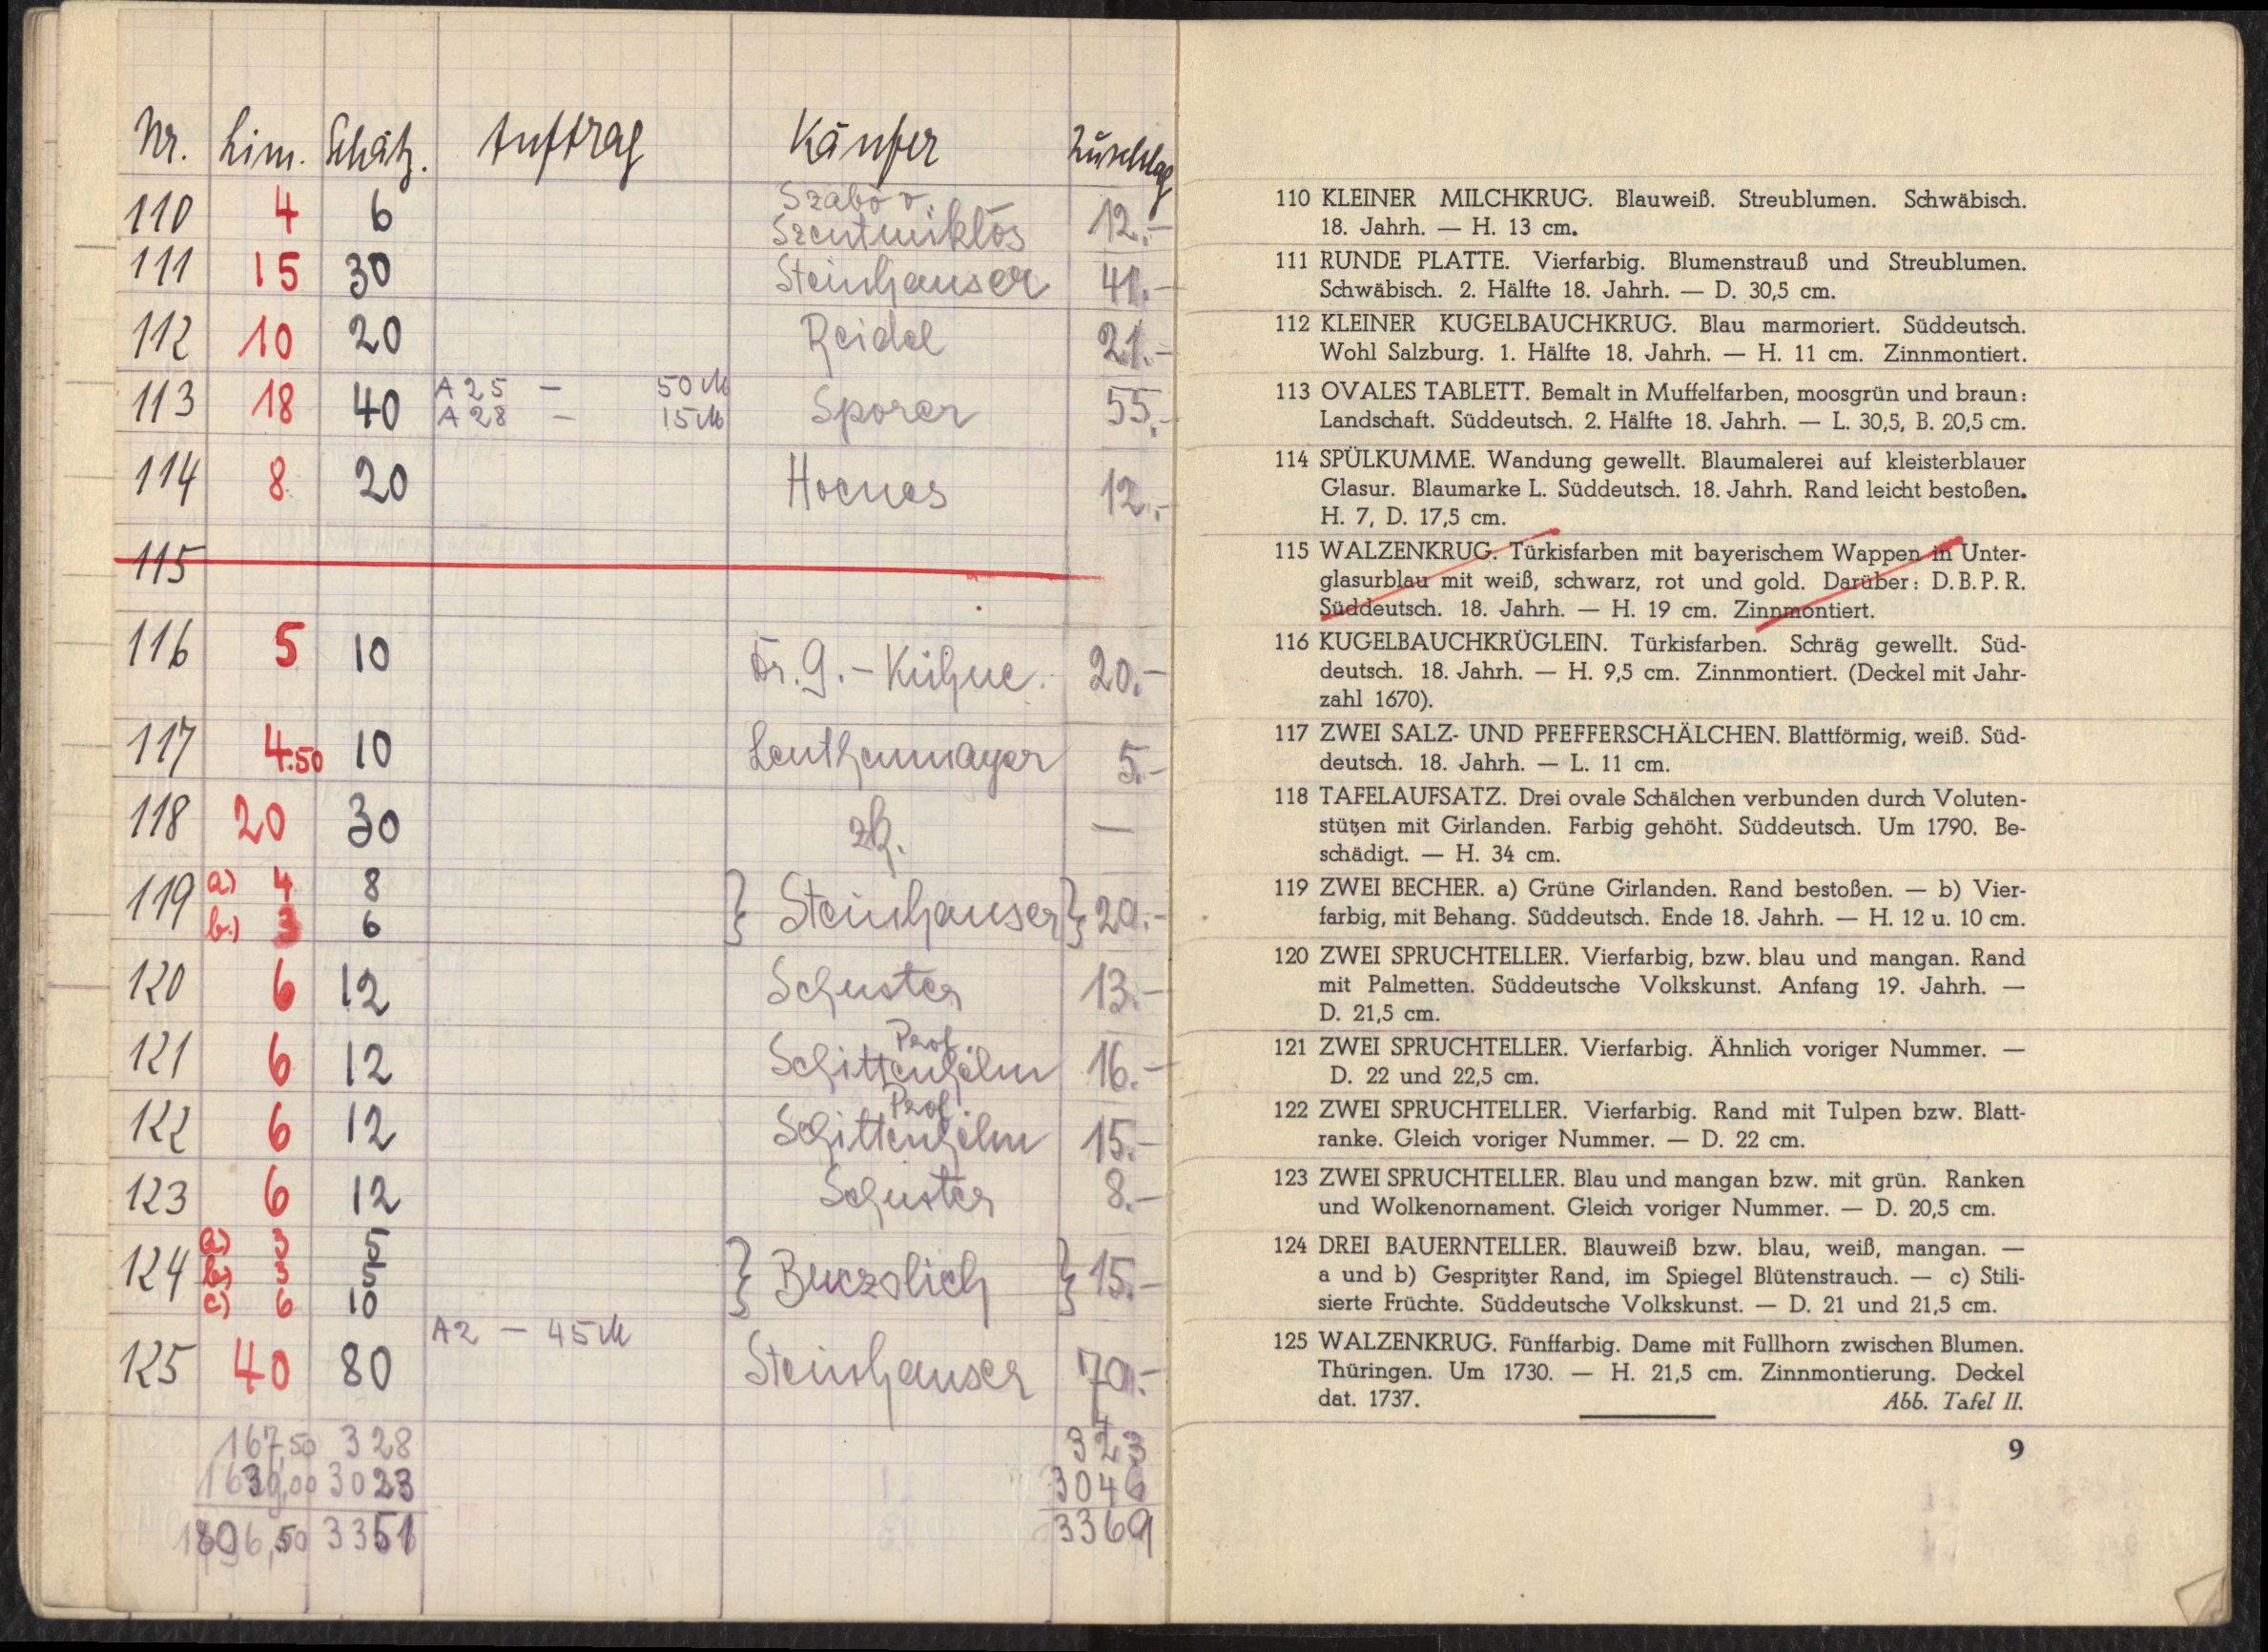 Nr. Lim. Schätz. Auftrag Käufer Zuschlag
110 4 6 Szabo v. Szentmiklós 12.-
111 15 30 Steinhauser 41.-
112 10 20 Reidel 21.-
113 18 40 A 25 - 50 M Sporer 55.-
A 28 - 15 M
114 8 20 Hocnes 12.-
115
116 5 10 Fr. G. - Kühne. 20.-
117 4.50 10 Leuthenmayer 5.-
118 20 30 zk. —
119 a) 4 8 } Steinhauser } 20.-
b.) 3 6
120 6 12 Schuster 13.-
121 6 12 Prof. Schittenhelm 16.-
122 6 12 Prof. Schittenhelm 15.-
123 6 12 Schuster 8.-
124 a) 3 5 } Buczolich } 15.-
b) 3 5
c) 6 10
A 2 - 45 M
125 40 80 Steinhauser 70.-
167,50 328 323
3023 3046
3351 3369
110 KLEINER MILCHKRUG. Blauweiß. Streublumen. Schwäbisch.
18. Jahrh. — H. 13 cm.
111 RUNDE PLATTE. Vierfarbig. Blumenstrauß und Streublumen.
Schwäbisch. 2. Hälfte 18. Jahrh. — D. 30,5 cm.
112 KLEINER KUGELBAUCHKRUG. Blau marmoriert. Süddeutsch.
Wohl Salzburg. 1. Hälfte 18. Jahrh. — H. 11 cm. Zinnmontiert.
113 OVALES TABLETT. Bemalt in Muffelfarben, moosgrün und braun:
Landschaft. Süddeutsch. 2. Hälfte 18. Jahrh. — L. 30,5, B. 20,5 cm.
114 SPÜLKUMME. Wandung gewellt. Blaumalerei auf kleisterblauer
Glasur. Blaumarke L. Süddeutsch. 18. Jahrh. Rand leicht bestoßen.
H. 7, D. 17,5 cm.
115 WALZENKRUG. Türkisfarben mit bayerischem Wappen in Unter-
glasurblau mit weiß, schwarz, rot und gold. Darüber: D. B. P. R.
Süddeutsch. 18. Jahrh. — H. 19 cm. Zinnmontiert.
116 KUGELBAUCHKRÜGLEIN. Türkisfarben. Schräg gewellt. Süd-
deutsch. 18. Jahrh. — H. 9,5 cm. Zinnmontiert. (Deckel mit Jahr-
zahl 1670).
117 ZWEI SALZ- UND PFEFFERSCHÄLCHEN. Blattförmig, weiß. Süd-
deutsch. 18. Jahrh. — L. 11 cm.
118 TAFELAUFSATZ. Drei ovale Schälchen verbunden durch Voluten-
stützen mit Girlanden. Farbig gehöht. Süddeutsch. Um 1790. Be-
schädigt. — H. 34 cm.
119 ZWEI BECHER. a) Grüne Girlanden. Rand bestoßen. — b) Vier-
farbig, mit Behang. Süddeutsch. Ende 18. Jahrh. — H. 12 u. 10 cm.
120 ZWEI SPRUCHTELLER. Vierfarbig, bzw. blau und mangan. Rand
mit Palmetten. Süddeutsche Volkskunst. Anfang 19. Jahrh. —
D. 21,5 cm.
121 ZWEI SPRUCHTELLER. Vierfarbig. Ähnlich voriger Nummer. —
D. 22 und 22,5 cm.
122 ZWEI SPRUCHTELLER. Vierfarbig. Rand mit Tulpen bzw. Blatt-
ranke. Gleich voriger Nummer. — D. 22 cm.
123 ZWEI SPRUCHTELLER. Blau und mangan bzw. mit grün. Ranken
und Wolkenornament. Gleich voriger Nummer. — D. 20,5 cm.
124 DREI BAUERNTELLER. Blauweiß bzw. blau, weiß, mangan. —
a und b) Gespritzter Rand, im Spiegel Blütenstrauch. — c) Stili-
sierte Früchte. Süddeutsche Volkskunst. — D. 21 und 21,5 cm.
125 WALZENKRUG. Fünffarbig. Dame mit Füllhorn zwischen Blumen.
Thüringen. Um 1730. — H. 21,5 cm. Zinnmontierung. Deckel
dat. 1737. Abb. Tafel II.
9